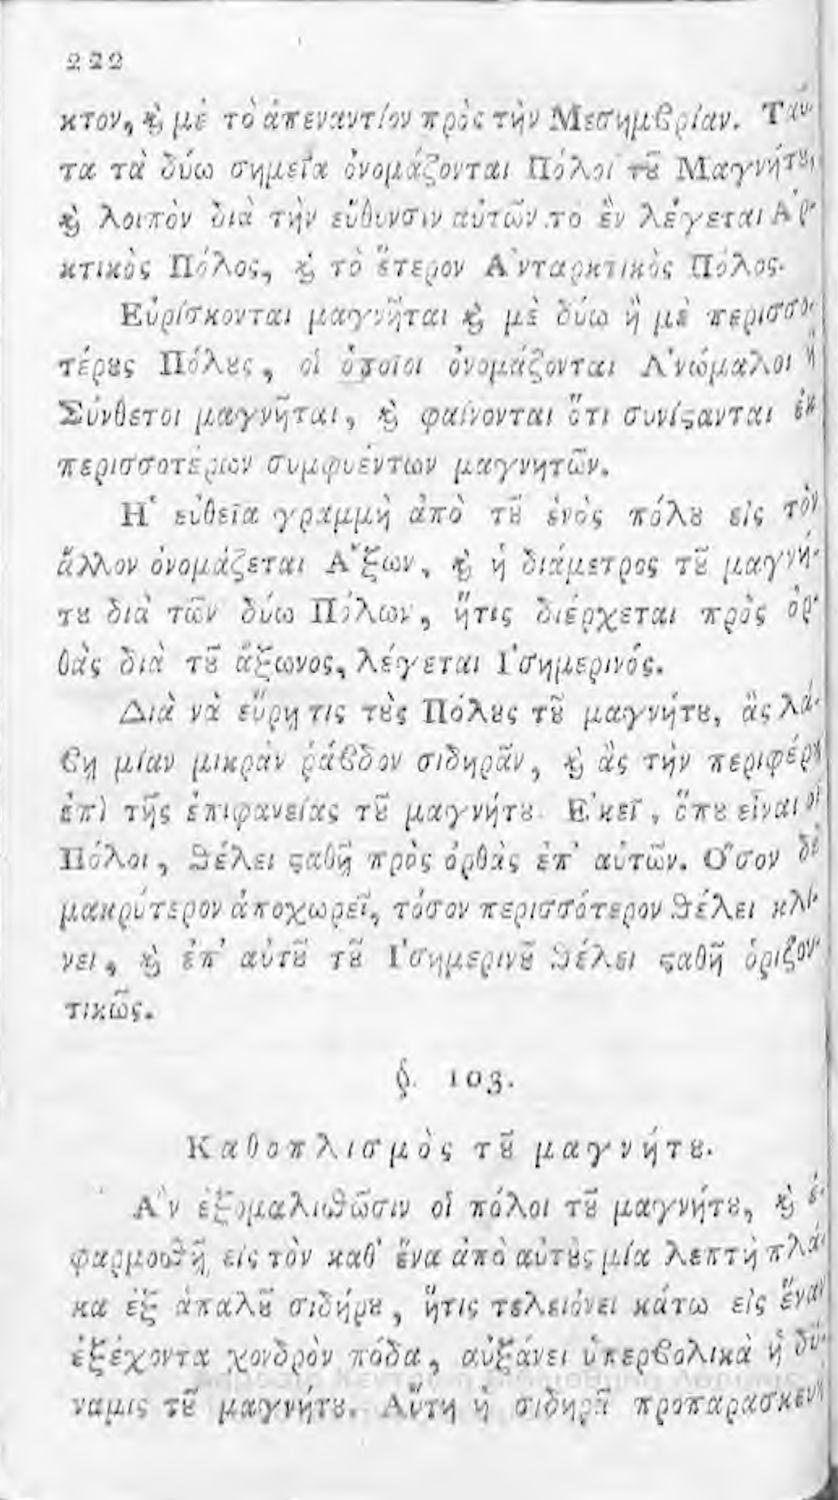 222
κτον, ϗ μὲ τὸ ἀπεναντίον πρὸς τὴν Μεσημβρίαν. Ταῦ-
τα τὰ δύω σημεῖα ὀνομάζονται Πόλοι τȣ͂ Μαγνήτȣ,
ϗ λοιπὸν διὰ τὴν εὔθυνσιν αὐτῶν τὸ ἓν λέγεται Ἀρ-
κτικὸς Πόλος, ϗ τὸ ἕτερον Ἀνταρκτικὸς Πόλος.
Εὑρίσκονται μαγνῆται ϗ μὲ δύω ἢ μὲ περισσο-
τέρȣς Πόλȣς, οἱ ὁποῖοι ὀνομάζονται Ἀνώμαλοι ἢ
Σύνθετοι μαγνῆται, ϗ φαίνονται ὅτι συνίϛανται ἐκ
περισσοτέρων συμφυέντων μαγνητῶν.
Ἡ εὐθεῖα γραμμὴ ἀπὸ τȣ͂ ἑνὸς πόλȣ εἰς τὸν
ἄλλον ὀνομάζεται Ἄξων, ϗ ἡ διάμετρος τȣ͂ μαγνή-
τȣ διὰ τῶν δύω Πόλων, ἥτις διέρχεται πρὸς ὀρ-
θὰς διὰ τȣ͂ ἄξωνος, λέγεται Ἰσημερινός.
Διὰ νὰ εὕρῃ τις τȣ̀ς Πόλȣς τȣ͂ μαγνήτȣ, ἂς λά-
βῃ μίαν μικρὰν ῥάβδον σιδηρᾶν, ϗ ἂς τὴν περιφέρῃ
ἐπὶ τῆς ἐπιφανείας τȣ͂ μαγνήτȣ. Ἐκεῖ, ὅπȣ εἶναι οἱ
Πόλοι, ϑέλει ϛαθῆ πρὸς ὀρθὰς ἐπ' αὐτῶν. Ὅσον δὲ
μακρύτερον ἀποχωρεῖ, τόσον περισσότερον ϑέλει κλί-
νει, ϗ ἐπ' αὐτȣ͂ τȣ͂ Ἰσημερινȣ͂ ϑέλει ϛαθῆ ὁριζον-
τικῶς.
§. 103.
Καθοπλισμὸς τȣ͂ μαγνήτȣ.
Ἂν ἐξομαλισϑῶσιν οἱ πόλοι τȣ͂ μαγνήτȣ, ϗ ἐ-
φαρμοσθῆ εἰς τὸν καθ' ἕνα ἀπὸ αὐτȣ̀ς μία λεπτὴ πλά-
κα ἐξ ἁπαλȣ͂ σιδήρȣ, ἥτις τελειόνει κάτω εἰς ἕναν
ἐξέχοντα χονδρὸν πόδα, αὐξάνει ὑπερβολικὰ ἡ δύ-
ναμις τȣ͂ μαγνήτȣ. Αὕτη ἡ σιδηρᾶ προπαρασκευὴ